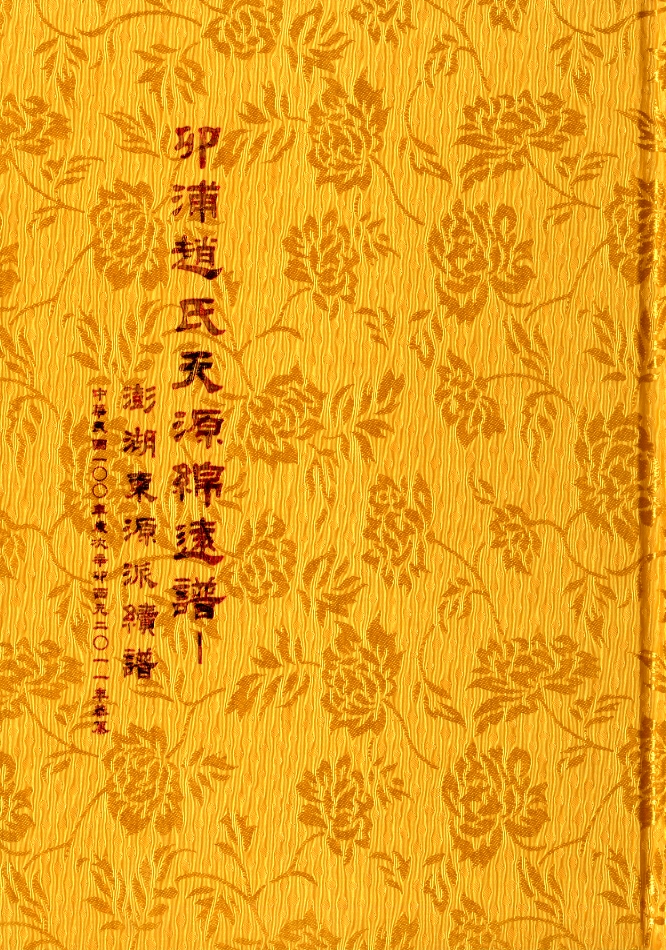 卯浦趙氏天源綿遠譜—
澎湖東源派續譜
中華民國一〇〇年歲次辛卯西元二〇一一年恭纂